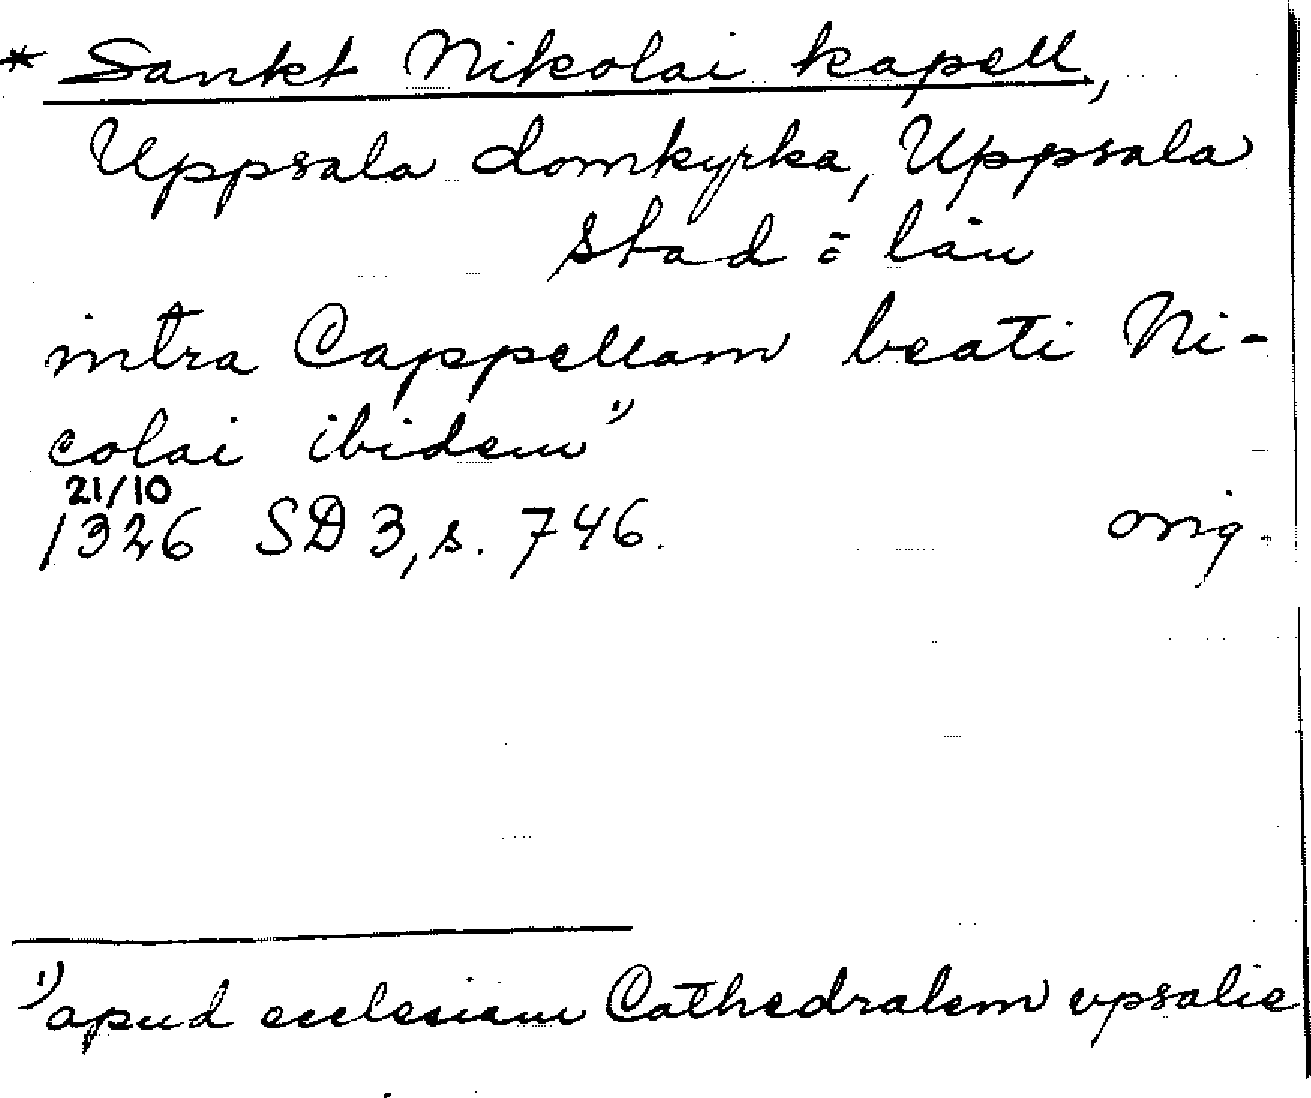 * Sankt Nikolai kapell,
Uppsala domkyrka, Uppsala
stad o län
intra Cappellam beati Ni-
colai ibidem 1)
21/10
1326 SD 3, s. 746. orig.
1) apud ecclesiam Cathedralem vpsalie